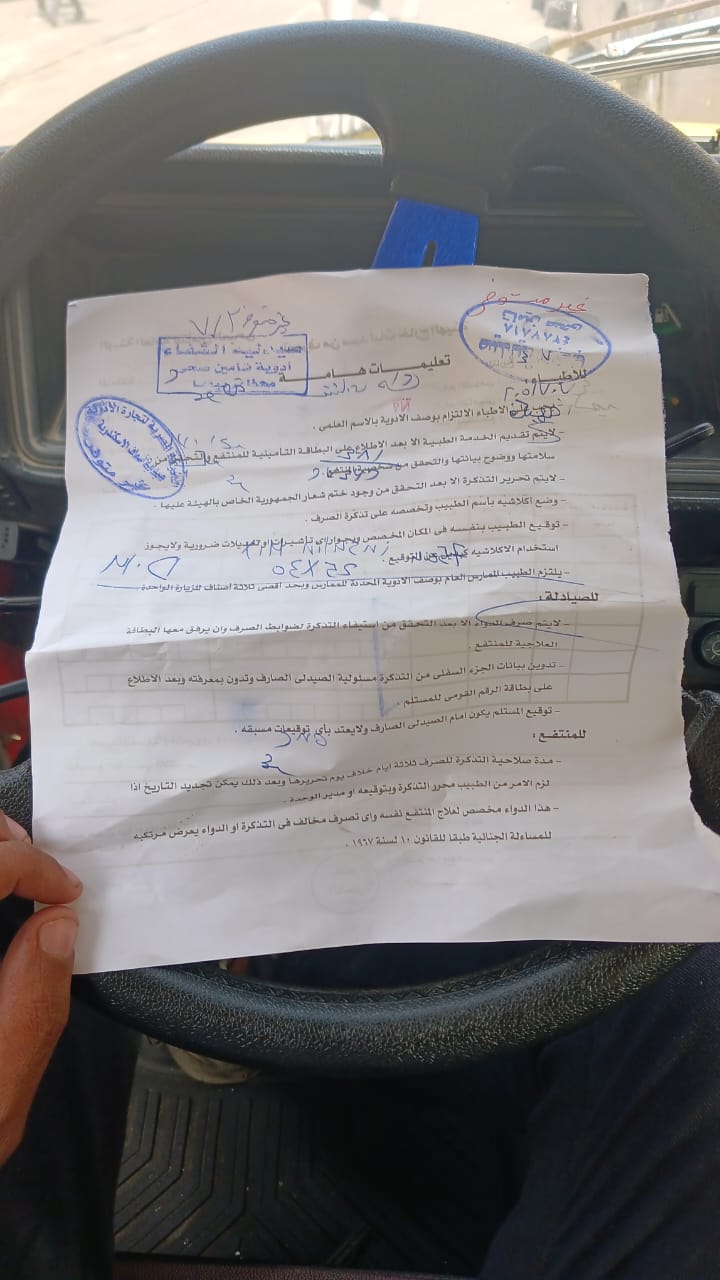 غير متوفر
غير متوفر ٧/٢
صيدلية الشفاء
أدوية تأمين صحي
تعليمات هامة
للأطباء :
الأطباء الالتزام بوصف الأدوية بالاسم العلمى .
- لايتم تقديم الخدمة الطبية الا بعد الاطلاع على البطاقة التأمينية للمنتفع والتحقق من
سلامتها ووضوح بياناتها والتحقق من شخصية المنتفع
- لايتم تحرير التذكرة الا بعد التحقق من وجود ختم شعار الجمهورية الخاص بالهيئة عليها .
- وضع اكلاشيه بأسم الطبيب وتخصصه على تذكرة الصرف .
- توقيع الطبيب بنفسه فى المكان المخصص وبجوار اى تأشيرات او تعديلات ضرورية ولايجوز
استخدام الاكلاشيه كبديل عن التوقيع .
- يلتزم الطبيب الممارس العام بوصف الادوية المحددة للممارس وبحد اقصى ثلاثة أصناف للزيارة الواحدة .
للصيادلة :
- لايتم صرف الدواء الا بعد التحقق من استيفاء التذكرة لضوابط الصرف وان يرفق معها البطاقة
العلاجية للمنتفع .
- تدوين بيانات الجزء السفلى من التذكرة مسئولية الصيدلى الصارف وتدون بمعرفته وبعد الاطلاع
على بطاقة الرقم القومى للمستلم .
- توقيع المستلم يكون امام الصيدلى الصارف ولايعتد بأى توقيعات مسبقه .
للمنتفع :
- مدة صلاحية التذكرة للصرف ثلاثة ايام خلاف يوم تحريرها وبعد ذلك يمكن تجديد التاريخ اذا
لزم الامر من الطبيب محرر التذكرة وبتوقيعه او مدير الوحدة .
- هذا الدواء مخصص لعلاج المنتفع نفسه واى تصرف مخالف فى التذكرة او الدواء يعرض مرتكبه
للمساءلة الجنائية طبقا للقانون ١٠ لسنة ١٩٦٧ .